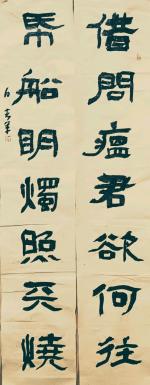 借問瘟君欲何往
帋船明燭照天燒